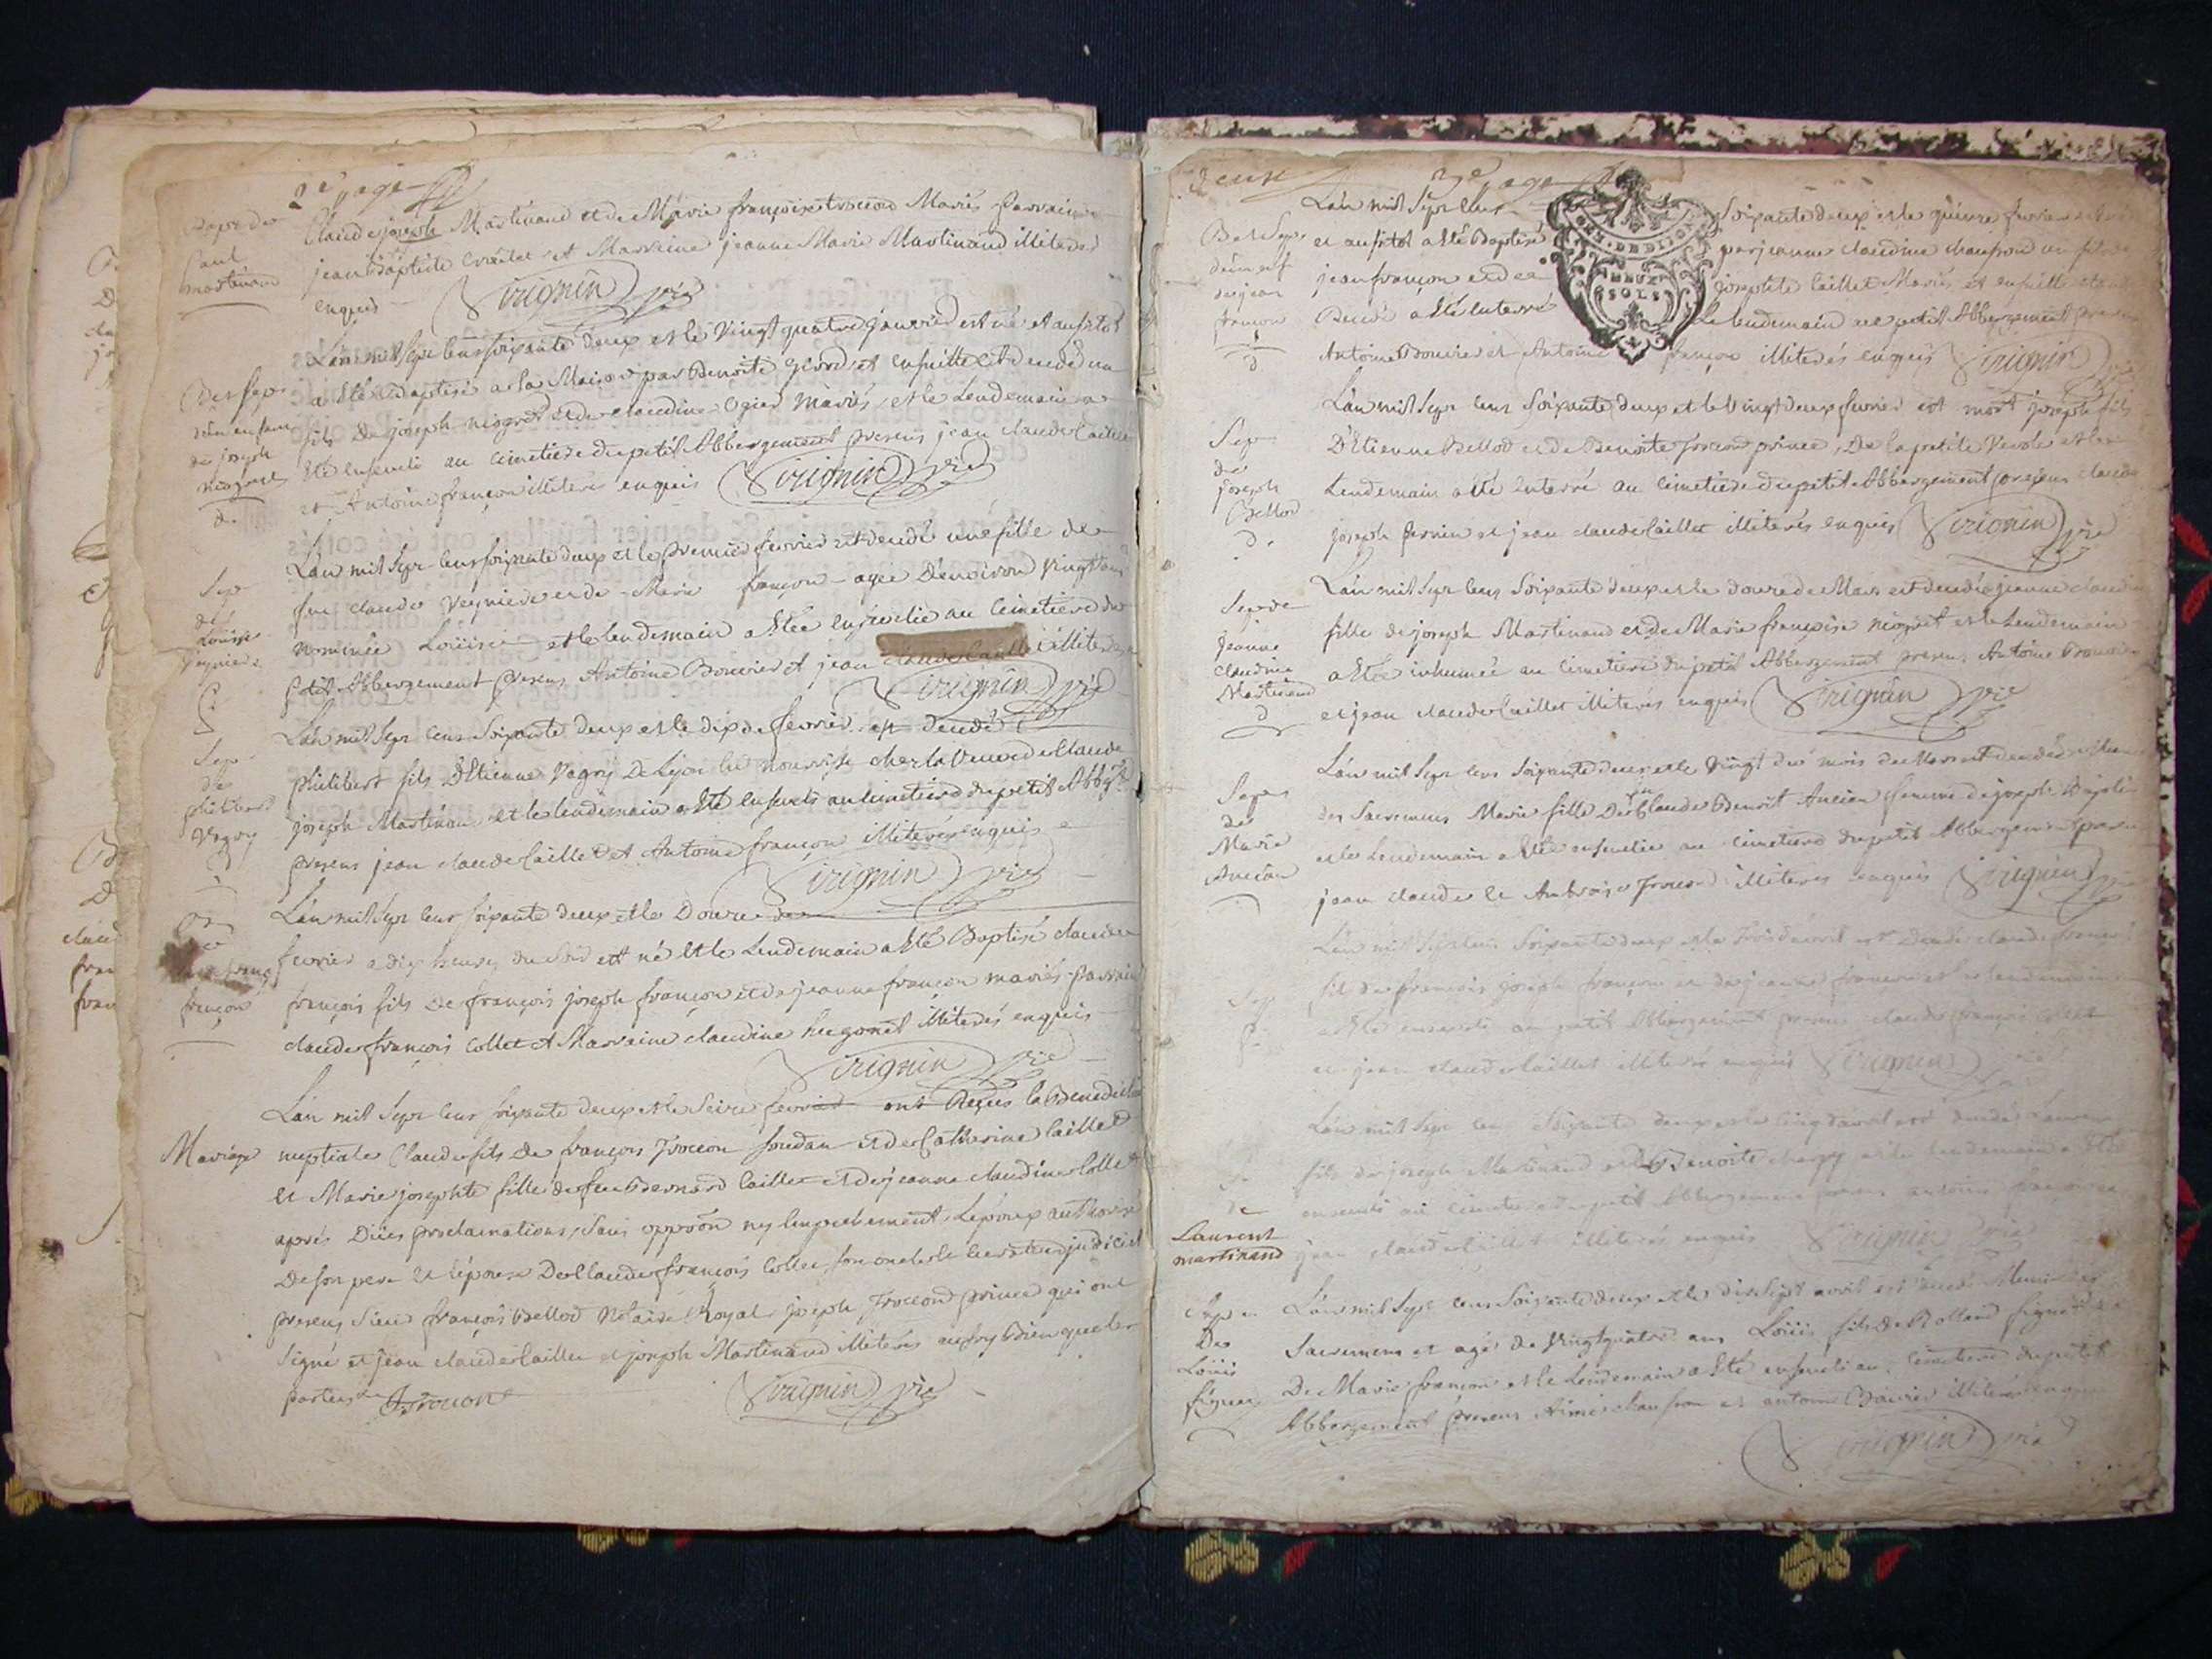 2e page
Bapt de
Paul
martinand
Claude joseph Martinand et de Marie françoise trocond Mariés Parrain
jean Baptiste et Marraine jeanne Marie Martinand illiterés
enquis Virignin vic
L'an mil sept cens soixante deux et le vingt quatre janvier est né et ausitot
B et Sep
d'un enfant
de joseph
niogret
a été Baptisé a la Maison par Benoite girod et ensuitte est decedé un
fils de joseph niogret et de claudine ogier Mariés, et le Lendemain a
été enseveli au cimetiere du petit Abbergement presens jean claude Caillet
et Antoine françon illiterés enquis Virignin vic
L'an mil sept cens soixante deux et le premier fevrier est decedé une fille de
Sep
de
Louise
Veyniere
feu claude Veyniere et de Marie françon agée D'environ vingt ans
nommée Louise et le lendemain a étée ensevelie au cimetiere du
petit Abbergement presens Antoine Bouvier et jean claude Caillet illiterés
Virignin vic
L'an mil sept cens soixante deux et le dix de fevrier est decedé
Sep
de
philibert
Vagry
philibert fils D'Etienne Vagry De Lyon en nourisse chez la Veuve de Claude
joseph Martinan et le lendemain a été enseveli au cimetiere du petit Abbgt
presens jean claude Caillet et Antoine françon illiterés enquis
Virignin vic
L'an mil sept cens soixante deux et le Douze de
françon
fevrier a dix heures du soir est né et le Lendemain a été Baptisé claude
françois fils De françois joseph françon et de jeanne françon mariés parrain
claude françois Collet et Marraine claudine hugonet illiterés enquis
Virignin vic
L'an mil sept cens soixante deux et le Seize fevrier ont Reçus la Benediction
Mariage
nuptiale Claude fils de françois Trocon soudan et de Catherine Caillet
et Marie josephte fille de feu Bernard Caillet et de jeanne claudine Collet
aprés Düés proclamations, Sans oppoõn ny empechement, L'epoux authorisé
De son pere et l'epouse De Claude françois Collet son oncle et le curateur judiciel
presens Sieur françois Bellod Notaire Royal joseph Trocond prince qui ont
Signé et jean claude Caillet et joseph Martinand illiterés aussy Bien que les
parties Trocon Virignin vic
3e page
L'an mil sept cens soixante deux et le quinze fevrier est né
GEN. DE DIJON
DEUX
SOLS
B et Sep
d'un enf
de jean
françon
d
et ausitot a été Baptisé par jeanne claudine chaufrod un fils de
jean françon et de josephte Caillet Mariés et ensuitte etant
Decedé a été enterré Le lendemain au petit Abbergement presens
Antoine Bouvier et Antoine françon illiterés enquis Virignin
L'an mil sept cens soixante deux et le Vingt deux fevrier est mort joseph fils
Sep
de
joseph
Bellod
d.
D'Etienne Bellod et de Benoite Trocond prince, De la petite Verole et le
Lendemain a été enterré au cimetiere du petit Abbergement presens claude
joseph fornier et jean claude Caillet illiterés enquis Virignin vic
L'an mil sept cens soixante deux et le douze de Mars est decedée jeanne claudine
Sep de
jeanne
claudine
Martinand
d
fille de joseph Martinand et de Marie françoise niogret et le Lendemain
a étée inhumée au cimetiere du petit Abbergement presens Antoine Bouvier
et jean claude Caillet illiterés enquis Virignin vic
L'an mil sept cens soixante deux et le Vingt du mois de Mars est decedée munie
Sep
de
Marie
Ancian
des Sacremens Marie fille De feu Claude Benoit Ancian femme de joseph
et le Lendemain a été ensevelie au cimetiere du petit Abbergement presens
jean claude et Ambroise Trocond illiterés enquis Virignin
L'an mil sept cens soixante deux et le trois d'avril est decedé claude françois
Sep
fils de françois joseph françon et de jeanne françon et le lendemain
a été enseveli au petit Abbergement presens claude françois Collet
et jean claude Caillet illiterés enquis Virignin vic
L'an mil sept cens soixante deux et le cinq d'avril est decedé Laurent
de
Laurent
martinand
fils de joseph Martinand et de Benoite et le lendemain a été
enseveli au cimetiere du petit Abbergement presens antoine
jean claude Caillet illiterés enquis Virignin vic
L'an mil sept cens soixante deux et le dix sept avril est decedé Muni des
Sep
De
Loüis
figuet
Sacremens et agé de Vingt quatre ans Loüis fils de Rolland figuet et
De Marie françon et le lendemain a été enseveli au cimetiere du petit
Abbergement presens Aimé chaufron et antoine Bouvier illiterés enquis
Virignin vic